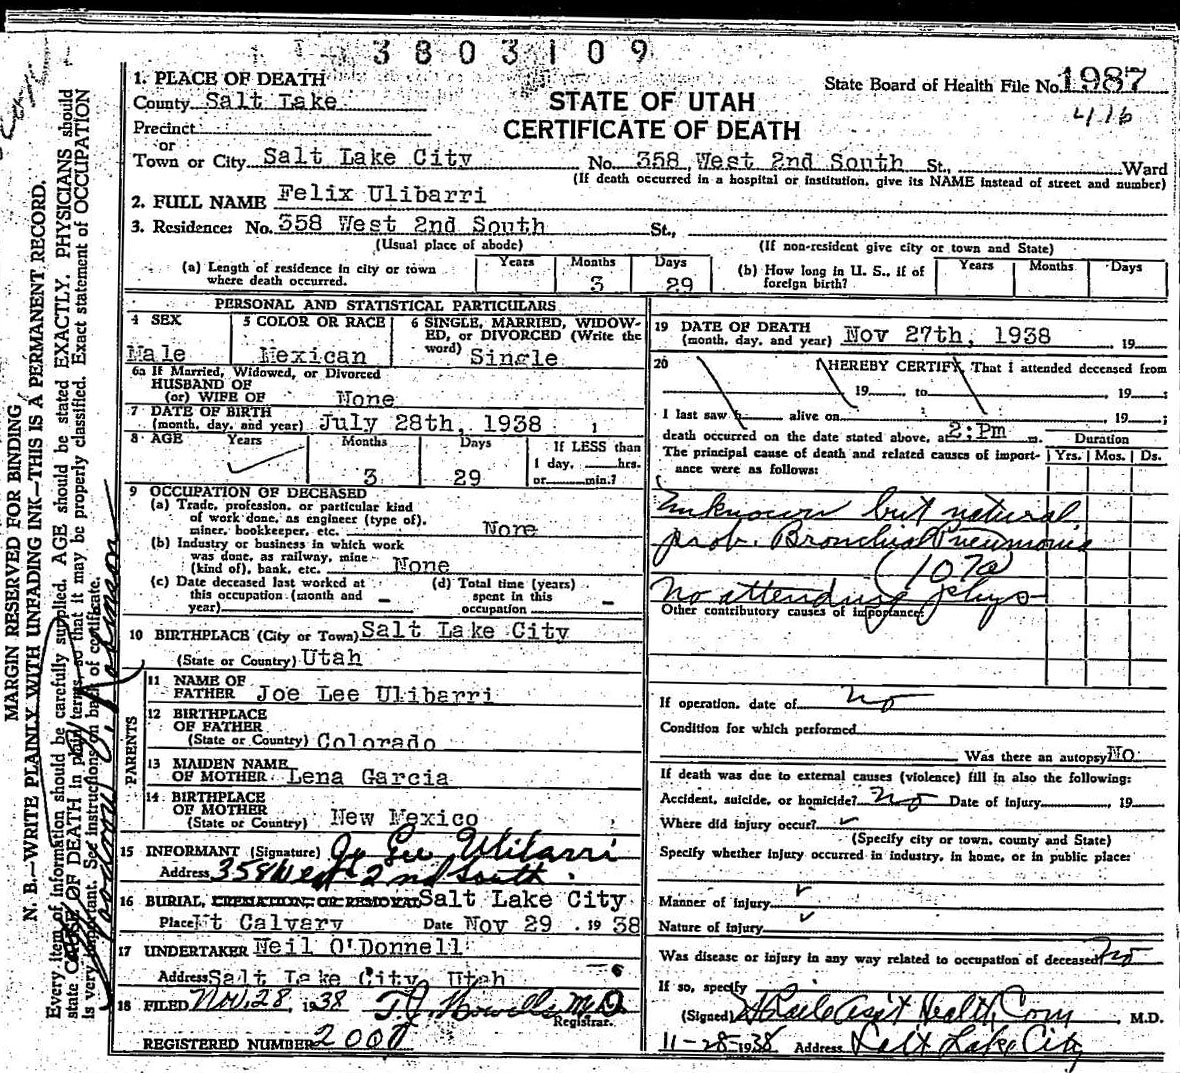 3803109
1. PLACE OF DEATH
County Salt Lake
State Board of Health File No. 1987
416
STATE OF UTAH
CERTIFICATE OF DEATH
Precinct
or
Town or City Salt Lake City No. 358 West 2nd South St., Ward
(If death occurred in a hospital or institution, give its NAME instead of street and number)
2. FULL NAME Felix Ulibarri
3. Residence: No. 358 West 2nd South St.,
(Usual place of abode) (If non-resident give city or town and State)
(a) Length of residence in city or town where death occurred. Years Months 3 Days 29
(b) How long in U. S., if of foreign birth? Years Months Days
PERSONAL AND STATISTICAL PARTICULARS
4 SEX Male
5 COLOR OR RACE Mexican
6 SINGLE, MARRIED, WIDOWED, or DIVORCED (Write the word) Single
6a If Married, Widowed, or Divorced
HUSBAND OF
(or) WIFE OF None
7 DATE OF BIRTH
(month, day, and year) July 28th, 1938
8 AGE Years Months 3 Days 29 If LESS than
1 day, hrs.
or min.?
9 OCCUPATION OF DECEASED
(a) Trade, profession, or particular kind
of work done, as engineer (type of),
miner, bookkeeper, etc. None
(b) Industry or business in which work
was done, as railway, mine
(kind of), bank, etc. None
(c) Date deceased last worked at
this occupation (month and
year) -
(d) Total time (years)
spent in this
occupation -
10 BIRTHPLACE (City or Town) Salt Lake City
(State or Country) Utah
PARENTS
11 NAME OF
FATHER Joe Lee Ulibarri
12 BIRTHPLACE
OF FATHER
(State or Country) Colorado
13 MAIDEN NAME
OF MOTHER Lena Garcia
14 BIRTHPLACE
OF MOTHER
(State or Country) New Mexico
15 INFORMANT (Signature) Jo Lee Ulibarri
Address 358 West 2nd South.
16 BURIAL, CREMATION, OR REMOVAL Salt Lake City
Place Mt Calvary Date Nov 29 . 19 38
17 UNDERTAKER Neil O'Donnell
Address Salt Lake City, Utah
18 FILED Nov. 28, 1938 T.J. Howells M.D.
Registrar.
REGISTERED NUMBER 2001
19 DATE OF DEATH
(month, day, and year) Nov 27th, 1938 , 19
20 I HEREBY CERTIFY, That I attended deceased from
19 , to , 19 ;
I last saw h alive on , 19 ;
death occurred on the date stated above, at 2;Pm m.
The principal cause of death and related causes of importance were as follows:
Duration
Yrs. Mos. Ds.
Unknown but natural
prob. Bronchial Pneumonia
(107a)
No attending phys
Other contributory causes of importance:
If operation, date of no
Condition for which performed
Was there an autopsy NO
If death was due to external causes (violence) fill in also the following:
Accident, suicide, or homicide? no Date of injury , 19
Where did injury occur?
(Specify city or town, county and State)
Specify whether injury occurred in industry, in home, or in public place:
Manner of injury
Nature of injury
Was disease or injury in any way related to occupation of deceased no
If so, specify
(Signed) Asst Health Com , M.D.
11-28-1938 Address Salt Lake City
MARGIN RESERVED FOR BINDING
N. B.—WRITE PLAINLY WITH UNFADING INK—THIS IS A PERMANENT RECORD.
Every item of information should be carefully supplied. AGE should be stated EXACTLY. PHYSICIANS should
state CAUSE OF DEATH in plain terms, so that it may be properly classified. Exact statement of OCCUPATION
is very important. See instructions on back of certificate.